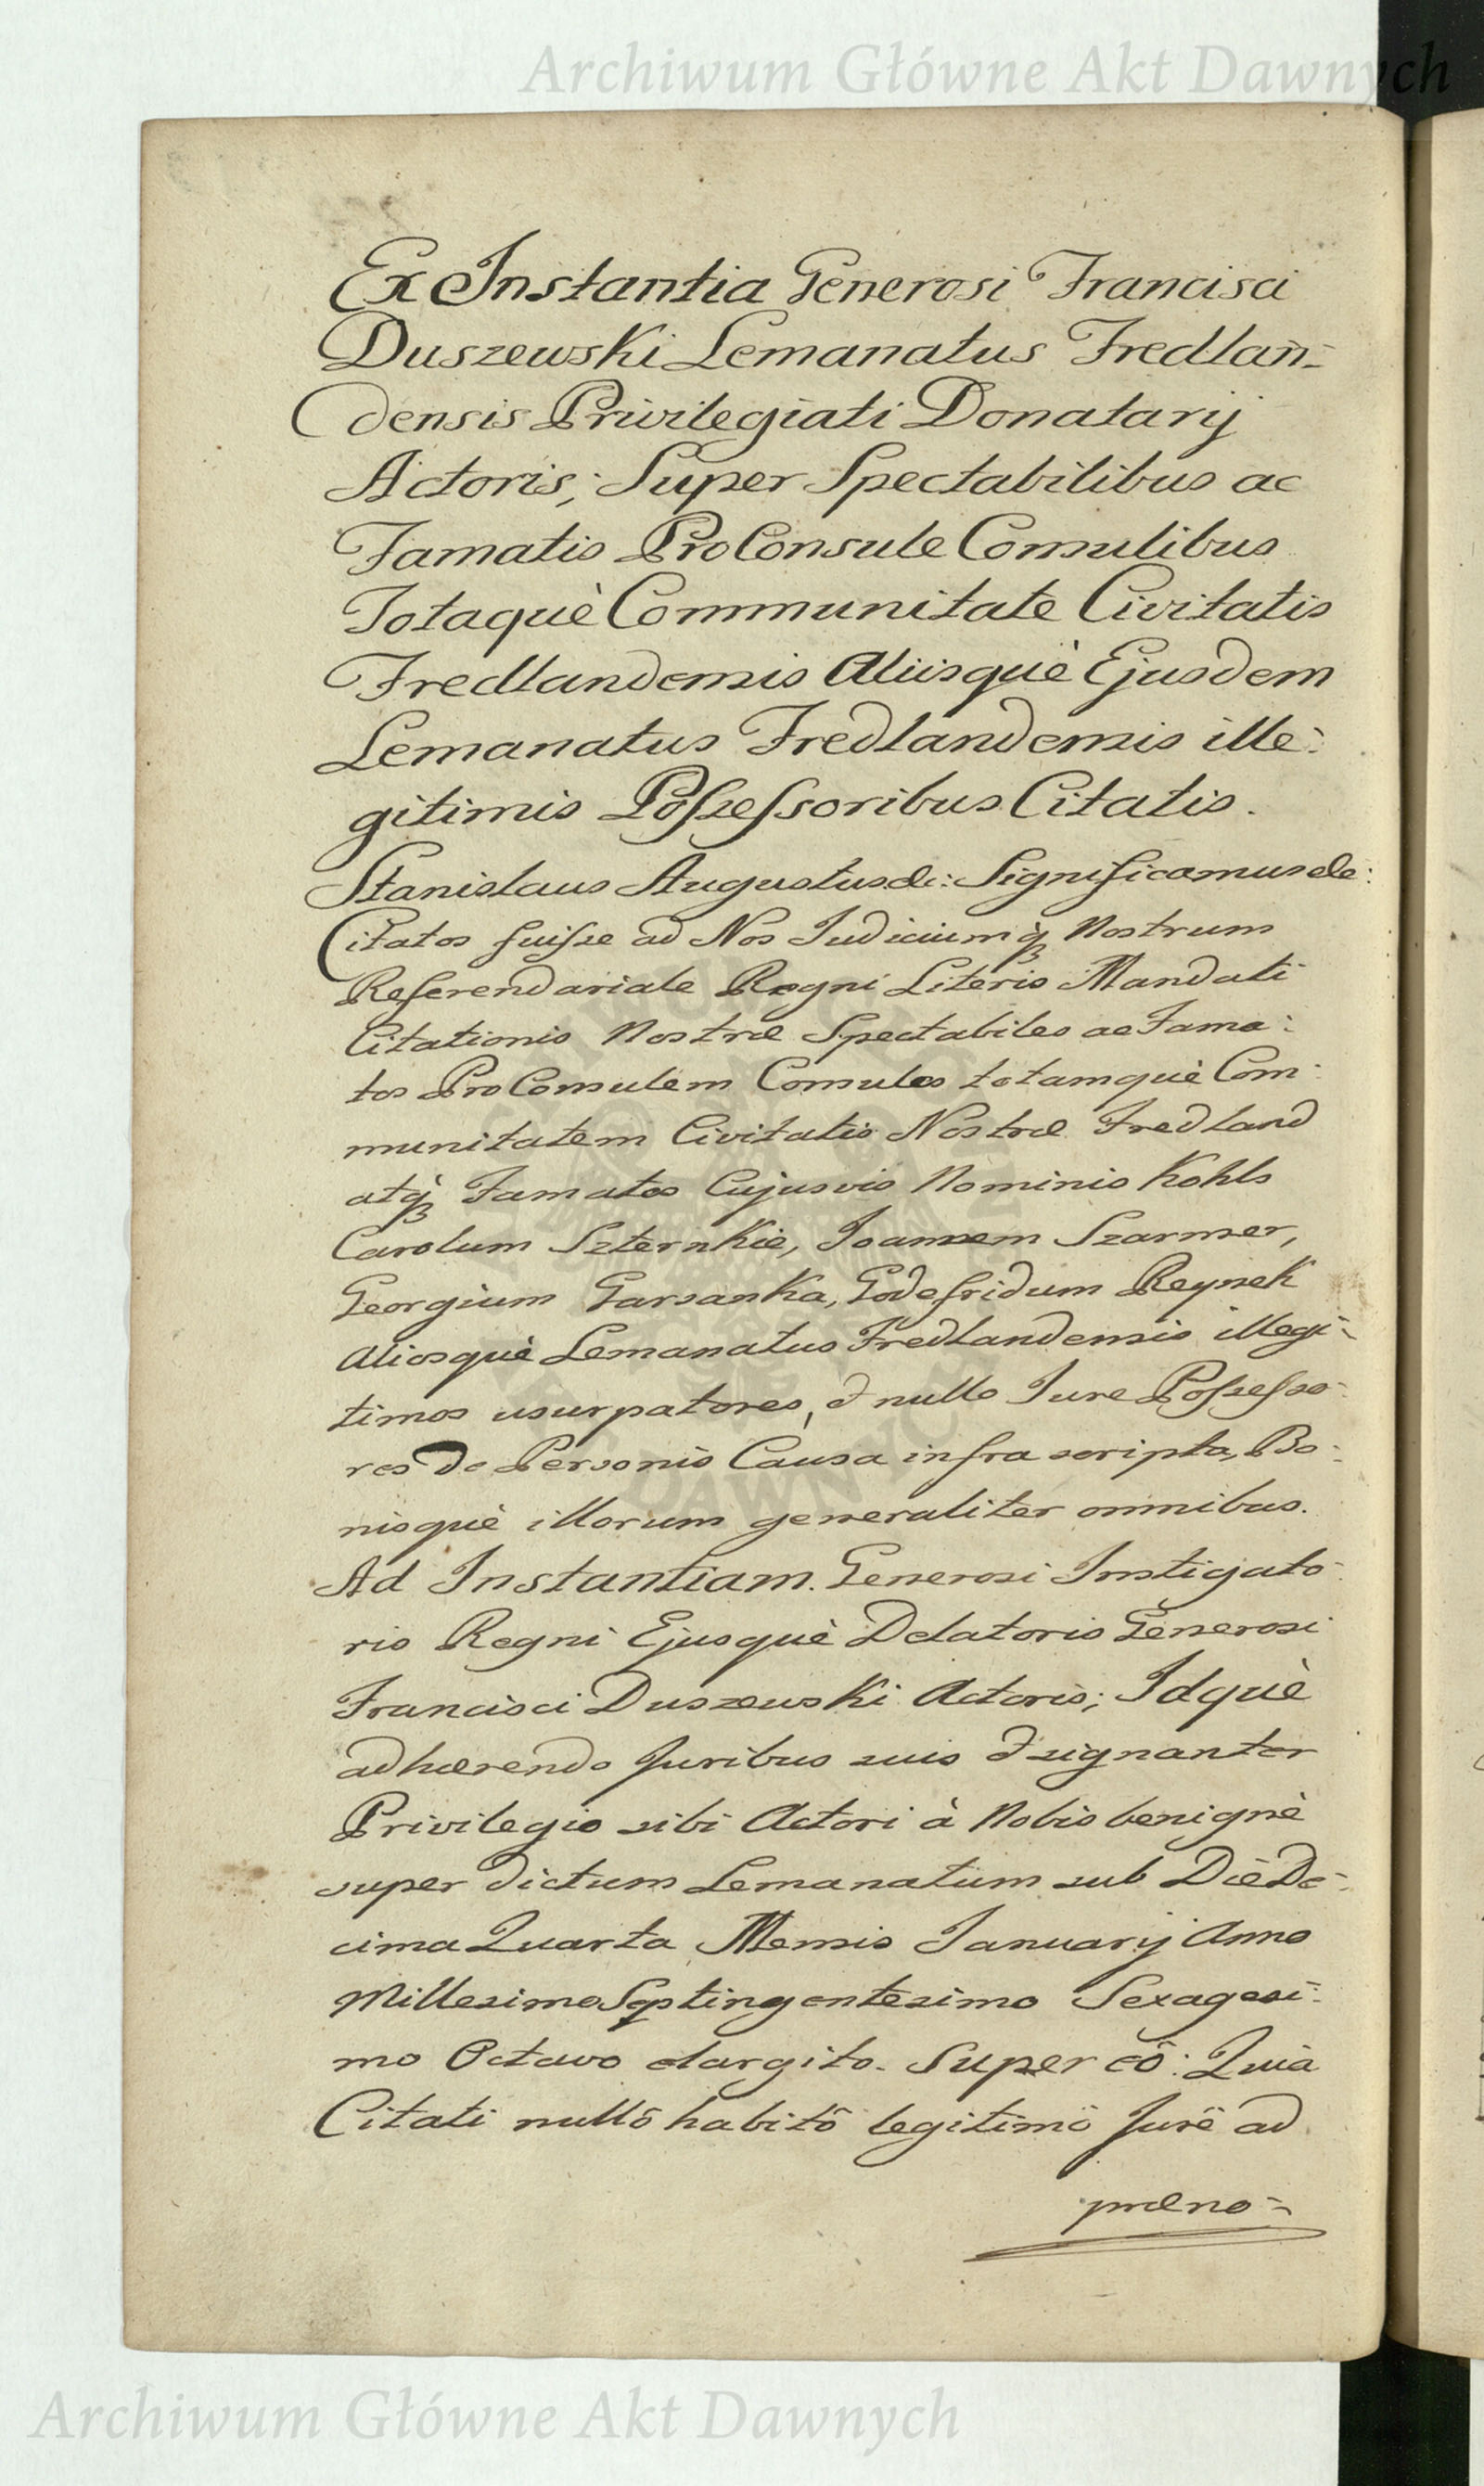 Archiwum Główne Akt Dawnych
Ex Instantia Generosi Francisci
Duszewski Lemanatus Fredlan-
densis Privilegiati Donatarij
Actoris; Super Spectabilibus ac
Famatis ProConsule Consulibus
Totaquè Communitate Civitatis
Fredlandensis Aliisquè Ejusdem
Lemanatus Fredlandensis ille:
gitimis Possessoribus Citatis.
Stanislaus Augustus &c: Significamus &c:
Citatos fuisse ad Nos Judiciumq3 Nostrum
Referendariale Regni Literis Mandati
Citationis Nostræ Spectabiles ac Fama:
tos ProConsulem Consules totamquè Com:
munitatem Civitatis Nostræ Fredland
atq3 Famatos Cujusvis Nominis Kohls
Carolum Szternkie, Joannem Szarmer,
Georgium Garsanka, Godefridum Reynek
Aliosquè Lemanatus Fredlandensis illegi-
timos usurpatores, & nullo Jure Possesso-
res De Personis Causa infra scripta, Bo:
nisquè illorum generaliter omnibus.
Ad Instantiam Generosi Instigato-
ris Regni Ejusquè Delatoris Generosi
Francisci Duszewski Actoris; Idquè
adhærendo Juribus suis & signanter
Privilegio sibi Actori à Nobis benignè
super dictum Lemanatum sub Die De-
cima Quarta Mensis Januarij Anno
Millesimo Septingentesimo Sexagesi-
mo Octavo elargito. Super eô: Quia
Citati nullô habitô legitimô Jurê ad
præno-
Archiwum Główne Akt Dawnych